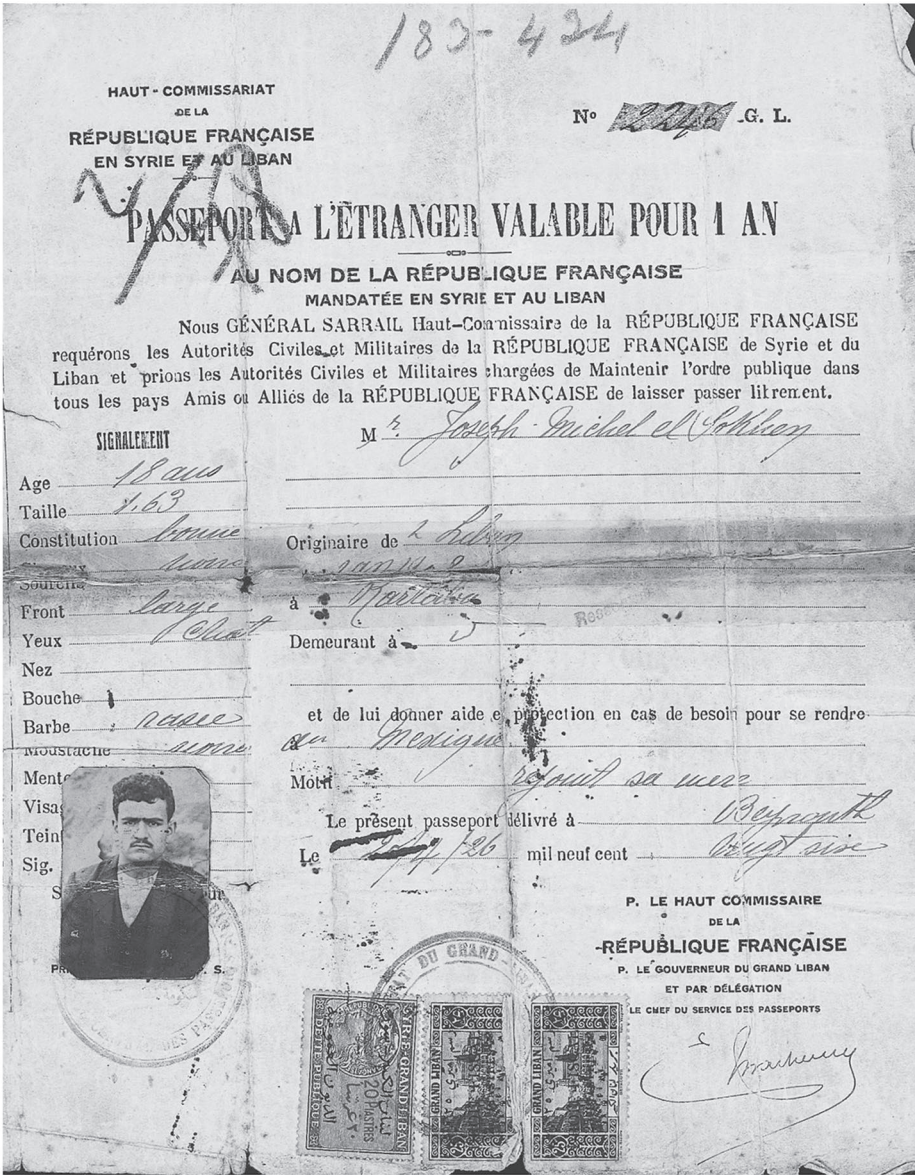 183-424
HAUT-COMMISSARIAT
DE LA
RÉPUBLIQUE FRANÇAISE
EN SYRIE ET AU LIBAN
No 2246 G. L.
PASSEPORT A L'ÉTRANGER VALABLE POUR 1 AN
AU NOM DE LA RÉPUBLIQUE FRANÇAISE
MANDATÉE EN SYRIE ET AU LIBAN
Nous GÉNÉRAL SARRAIL Haut-Commissaire de la RÉPUBLIQUE FRANÇAISE
requérons les Autorités Civiles et Militaires de la RÉPUBLIQUE FRANÇAISE de Syrie et du
Liban et prions les Autorités Civiles et Militaires chargées de Maintenir l'ordre publique dans
tous les pays Amis ou Alliés de la RÉPUBLIQUE FRANÇAISE de laisser passer librement.
SIGNALEMENT
Age 18 ans
Taille 1.63
Constitution bonne
noirs
Sourcils
Front large
Yeux Chat
Nez
Bouche
Barbe rasée
Moustache
Mento
Visag
Teint
Sig.
Mr. Joseph Michel el
Originaire de Liban
à Kartaba
Demeurant à
et de lui donner aide e protection en cas de besoin pour se rendre
au Mexique
Motif rejoint sa mere
Le présent passeport délivré à Beyrouth
Le 2/4/26 mil neuf cent vingt six
P. LE HAUT COMMISSAIRE
DE LA
RÉPUBLIQUE FRANÇAISE
P. LE GOUVERNEUR DU GRAND LIBAN
ET PAR DÉLÉGATION
LE CHEF DU SERVICE DES PASSEPORTS
DU GRAND
DES PASSEPOR
GRAND LIBAN
20 PIASTRES
DETTE PUBLIQUE
GRAND LIBAN
GRAND LIBAN